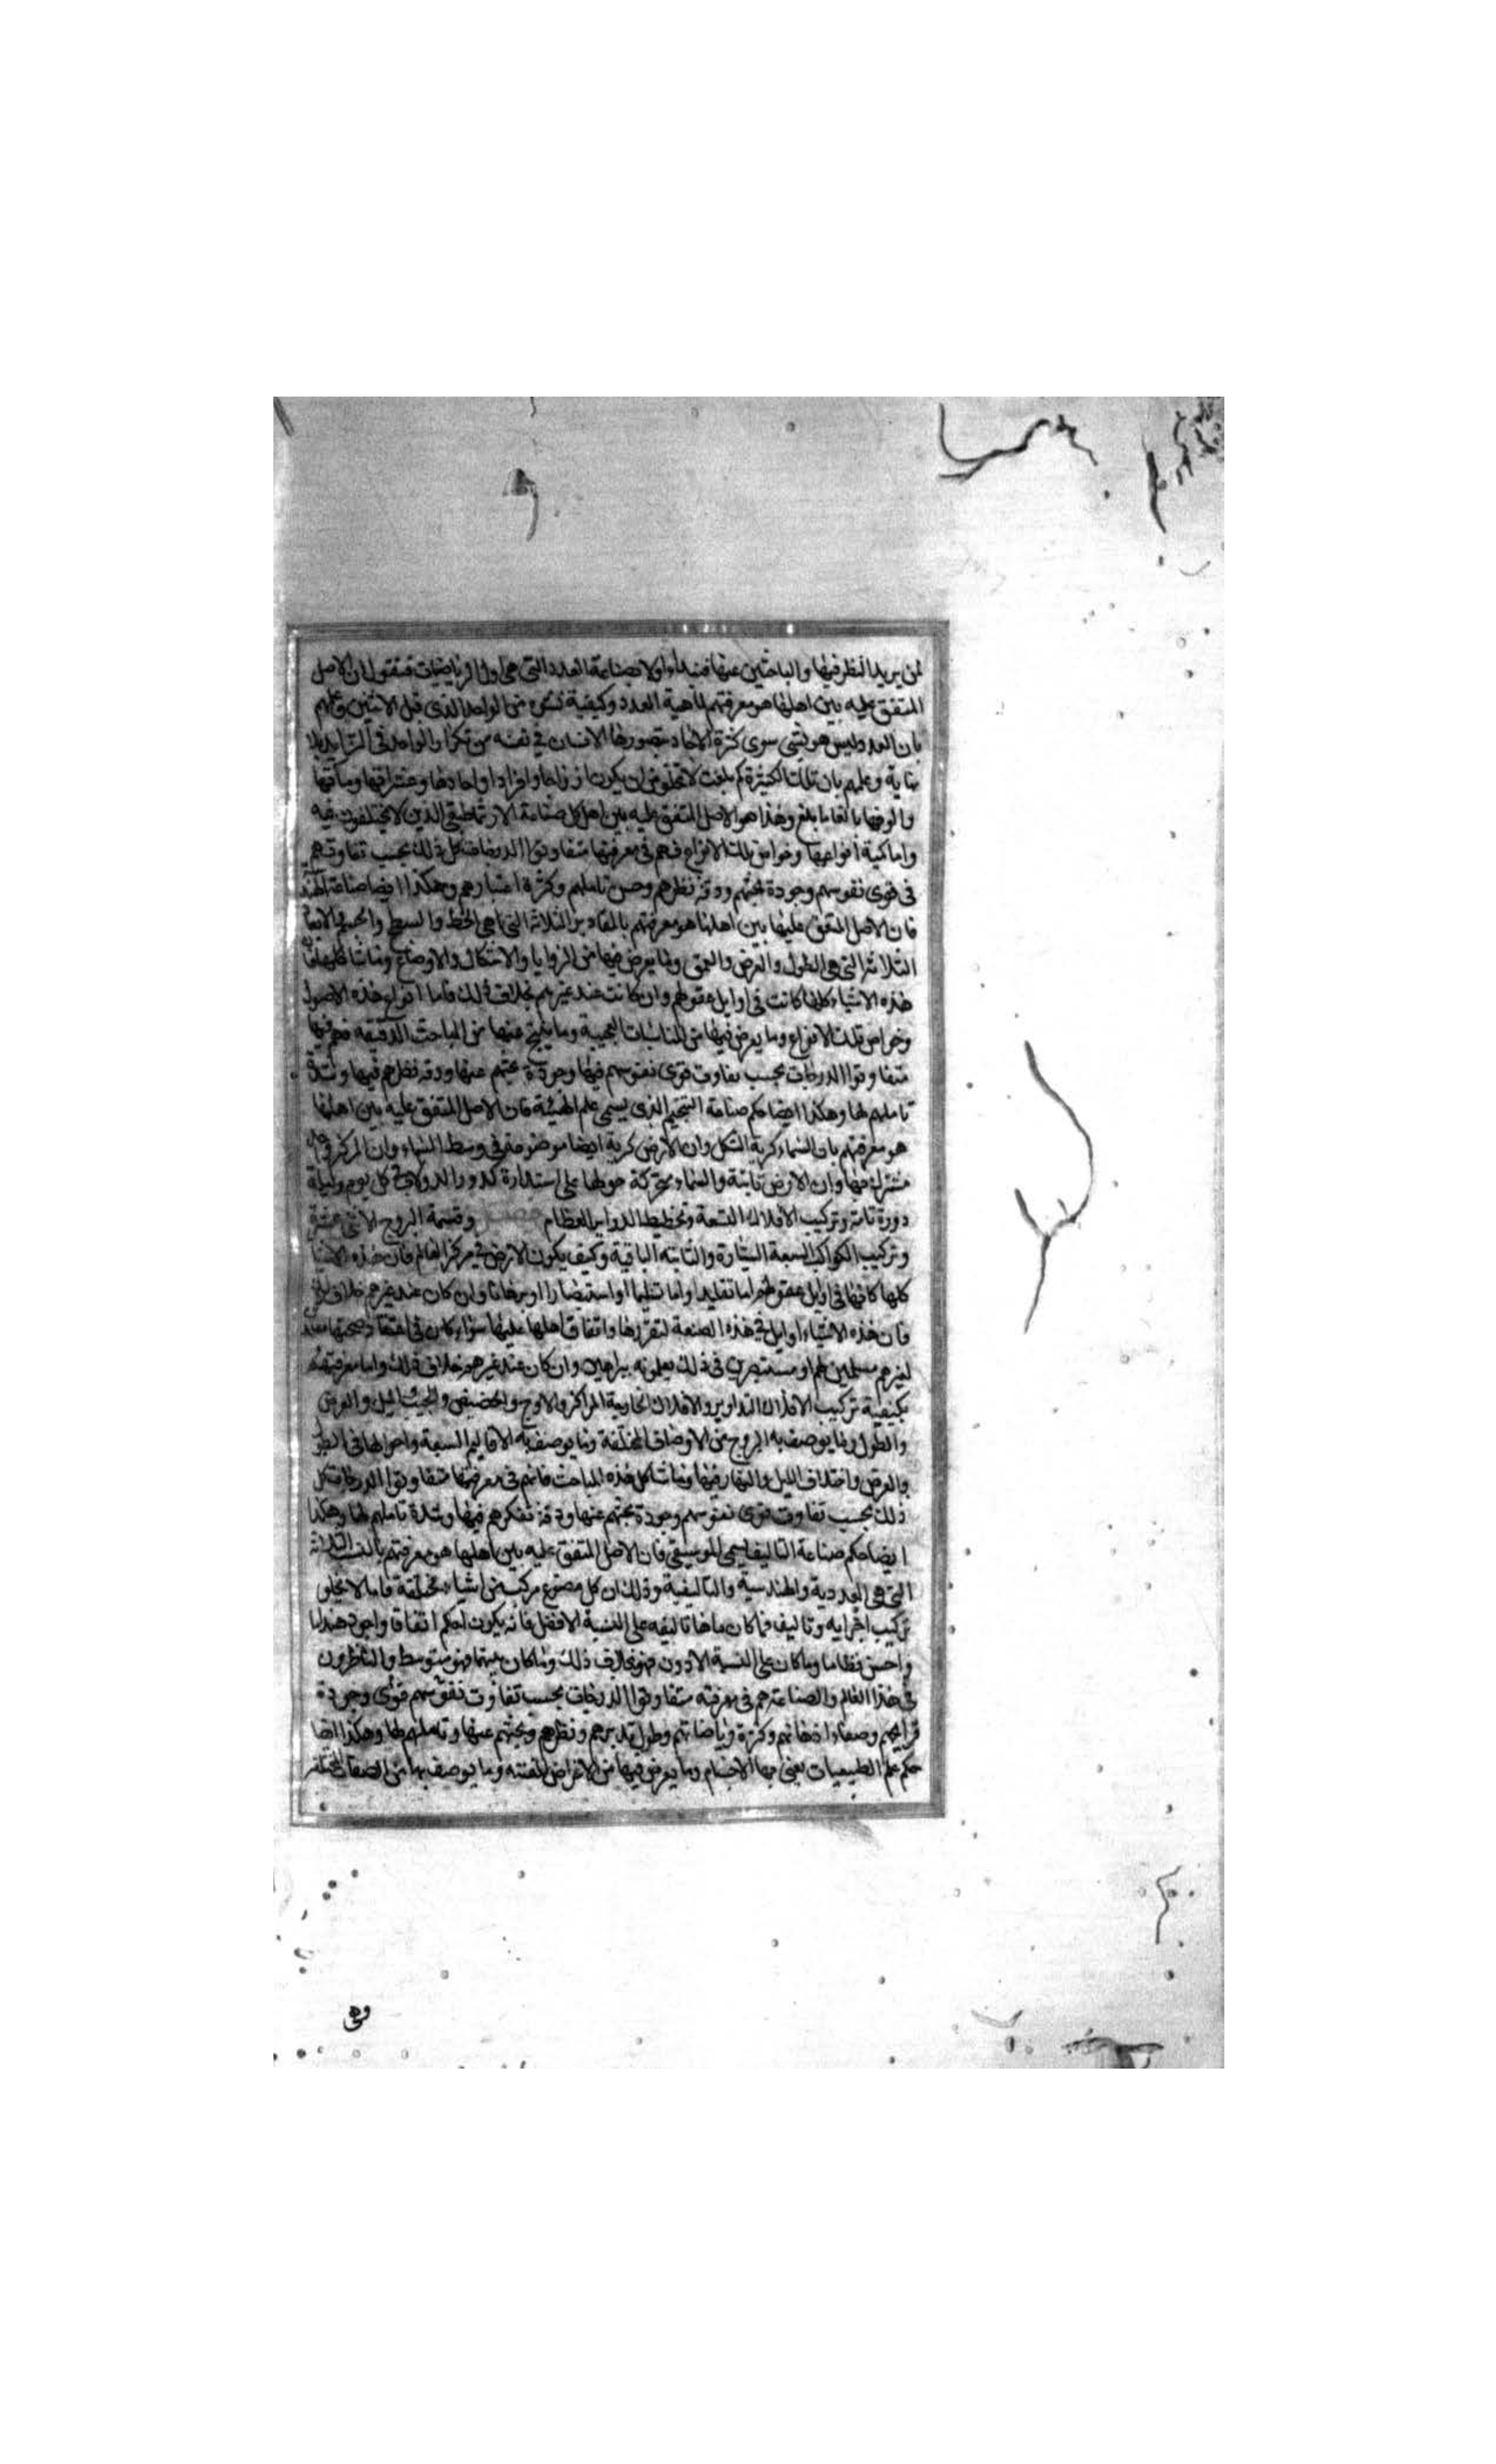 لمن يريد النظر فيها والباحثين عنها فنبدأ اولا بصناعة العدد التي هي اول الرياضيات فنقول ان الاصل
المتفق عليه بين اهلها هو معرفتهم بماهية العدد وكيفية نشوه من الواحد الذي قبل الاثنين وعلمهم
بان العدد ليس هو بشي سوى كثرة الاحاد يتصورها الانسان في نفسه من تكرار الواحد في التزايد بلا
نهاية وعلمهم بان تلك الكثرة كم بلغت لا تخلو من ان يكون ازواجا وافرادا واحادها وعشراتها ومآتها
والوفها بالغا ما بلغ وهذا هو الاصل المتفق عليه بين اهل كل صناعة الارثماطيقي الذين لا يختلفون فيه
واما كمية انواعها وخواص تلك الانواع فهم في معرفتها متفاوتوا الدرجات كل ذلك بحسب تفاوتهم
في قوى نفوسهم وجودة بحثهم ودقة نظرهم وحسن تاملهم وكثرة اعتبارهم وهكذا ايضا صناعة الهندسة
فان الاصل المتفق عليها بين اهلها هو معرفتهم بالمقادير الثلاثة التي هي الخط والسطح والجسم والابعاد
الثلاثة التي هي الطول والعرض والعمق وما يعرض فيها من الزوايا والاشكال والاوضاع وما شاكلها فان
هذه الاشياء كلها كانت في اوايل عقولهم وان كانت عند غيرهم بخلاف ذلك فاما انواع هذه الاصول
وخواص تلك الانواع وما يعرض فيها من المناسبات العجيبة وما ينتج عنها من المباحث الدقيقة فهم فيها
متفاوتوا الدرجات بحسب تفاوت قوى نفوسهم فيها وجودة بحثهم عنها ودقة نظرهم فيها وشدة
تاملهم لها وهكذا ايضا حكم صناعة التنجيم الذي يسمى علم الهيئة فان الاصل المتفق عليه بين اهلها
هو معرفتهم بان السماء كرية الشكل وان الارض كرية ايضا موضوعة في وسط السماء وان المركز
مشترك فيها وان الارض ثابتة والسماء متحركة حولها على استدارة كدور الدولاب في كل يوم وليلة
دورة تامة وتركيب الافلاك التسعة وتخطيط الدواير العظام وقسمة البروج الاثني عشر
وتركيب الكواكب السبعة السيارة والثابتة الباقية وكيف يكون الارض في مركز العالم فان هذه الاشياء
كلها كانها في اوايل عقولهم اما تقليدا واما تسليما او استبصارا او برهانا وان كان عند غيرهم خلاف ذلك
فان هذه الاشياء اوايل في هذه الصنعة لتقررها واتفاق اهلها عليها سواء كان في اعتقاد صحتها
لغيرهم مسلمين لهم او مستبصرين في ذلك يعلمونه ببراهين وان كان عند غيرهم خلاف ذلك واما معرفتهم
بكيفية تركيب الافلاك التداوير والافلاك الخارجة المراكز والاوج والحضيض والجيب والميل والعرض
والطول وما يوصف به البروج من الاوصاف المختلفة وما يوصف به الاقاليم السبعة واحوالها في الطول
والعرض واختلاف الليل والنهار فيها وما شاكل هذه المباحث فانهم في معرفتها متفاوتوا الدرجات كل
ذلك بحسب تفاوت قوى نفوسهم وجودة بحثهم عنها ودقة تفكرهم فيها وشدة تاملهم لها وهكذا
ايضا حكم صناعة التاليف المسمى الموسيقى فان الاصل المتفق عليه بين اهلها هو معرفتهم بالنسب الثلاثة
التي هي العددية والهندسية والتاليفية وذلك ان كل مصنوع مركب من اشياء مختلفة فاما لا تخلو
تركيب اجزايه وتاليف فما كان منها تاليفه على النسبة الافضل فانه يكون احكم اتفاقا واجود هنداما
واحسن نظاما وما كان على النسبة الادون فهو بخلاف ذلك وما كان بينهما فهو متوسط والناظرون
في هذا العالم والصناعة هم في معرفته متفاوتوا الدرجات بحسب تفاوت نفوسهم قوى وجودة
قرايحهم وصفاء اذهانهم وكثرة رياضاتهم وطول تدبرهم ونظرهم وبحثهم عنها وتاملهم لها وهكذا ايضا
حكم علم الطبيعيات يعني بها الاجسام وما يعرض فيها من الاعراض المفننة وما يوصف بها من الصفات المختلفة